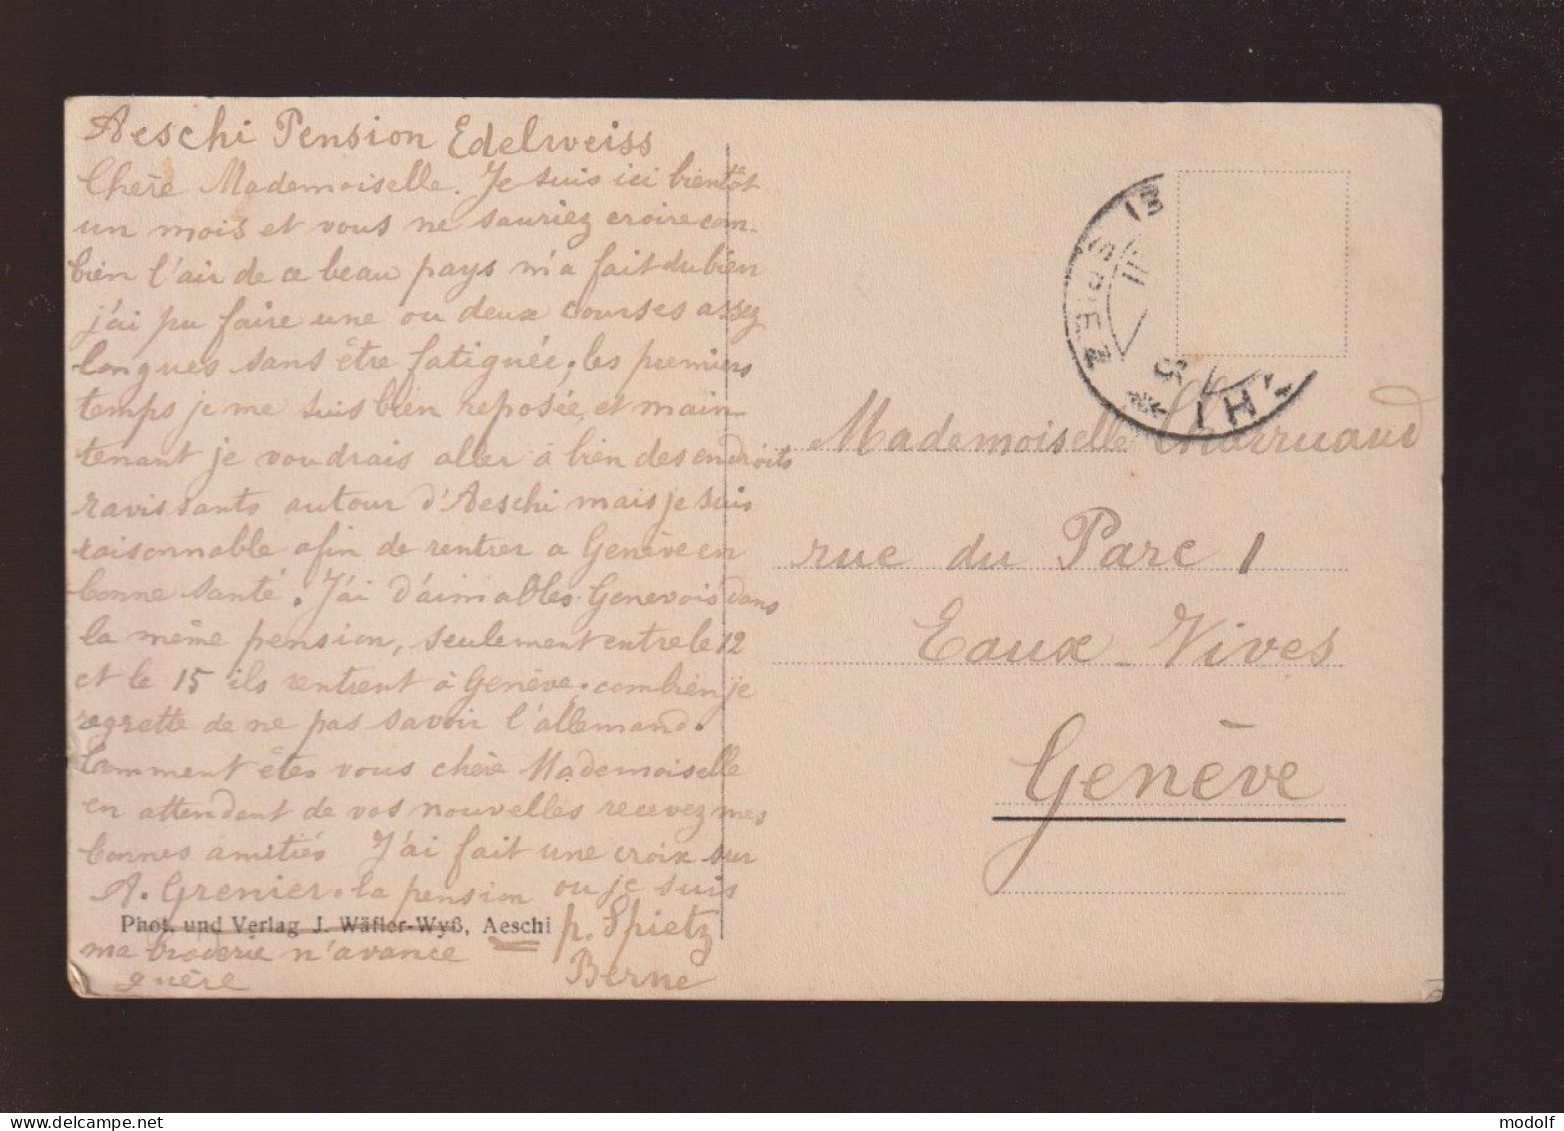 Aeschi Pension Edelweiss
Chère Mademoiselle. Je suis ici bientôt
un mois et vous ne sauriez croire com-
bien l'air de ce beau pays m'a fait du bien
j'ai pu faire une ou deux courses assez
longues sans être fatiguée, les premiers
temps je me suis bien reposée, et main-
tenant je voudrais aller à bien des endroits
ravissants autour d'Aeschi mais je suis
raisonnable afin de rentrer a Genève en
bonne santé. J'ai d'aimables Genevois dans
la même pension, seulement entre le 12
et le 15 ils rentrent à Genève. combien je
regrette de ne pas savoir l'allemand.
Comment êtes vous chère Mademoiselle
en attendant de vos nouvelles recevez mes
bonnes amitiés J'ai fait une croix sur
A. Grenier. la pension ou je suis
Phot. und Verlag J. Wäfler-Wyß, Aeschi
p. Spietz
ma broderie n'avance
guère
Berne
SPIEZ
Mademoiselle Charruaud
rue du Parc 1
Eaux-Vives
Genève
modolf